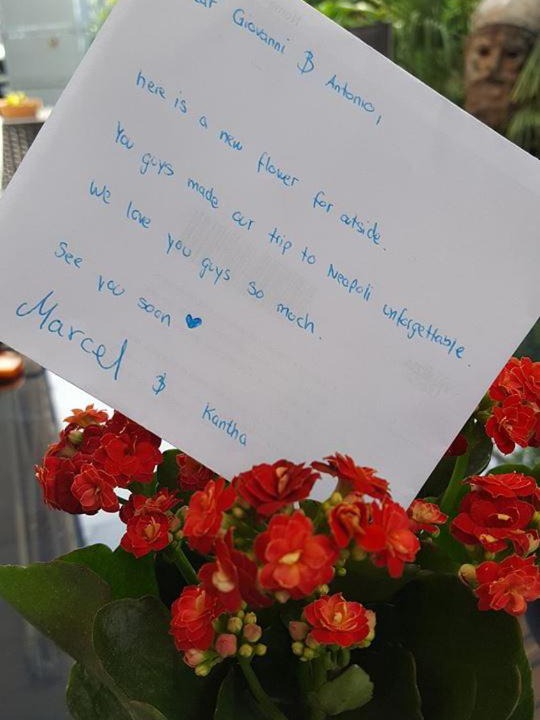 ar Giovanni & Antonio,
here is a new flower for outside.
You guys made our trip to Neapoli unforgettable.
We love you guys so much.
See you soon ♥
Marcel & Kantha